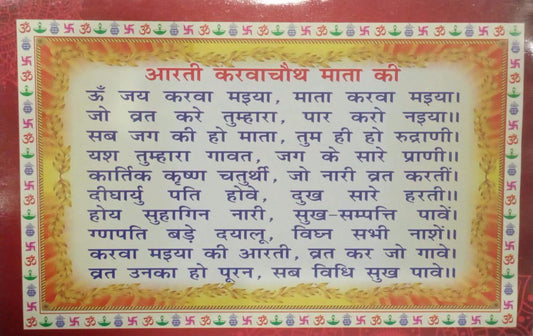 आरती करवाचौथ माता की
ऊँ जय करवा मइया, माता करवा मइया।
जो व्रत करे तुम्हारा, पार करो नइया।।
सब जग की हो माता, तुम ही हो रुद्राणी।
यश तुम्हारा गावत, जग के सारे प्राणी।।
कार्तिक कृष्ण चतुर्थी, जो नारी व्रत करतीं।
दीघार्यु पति होवे, दुख सारे हरती।।
होय सुहागिन नारी, सुख-सम्पत्ति पावें।
गणपति बड़े दयालू, विघ्न सभी नाशें।।
करवा मइया की आरती, व्रत कर जो गावे।
व्रत उनका हो पूरन, सब विधि सुख पावे।।